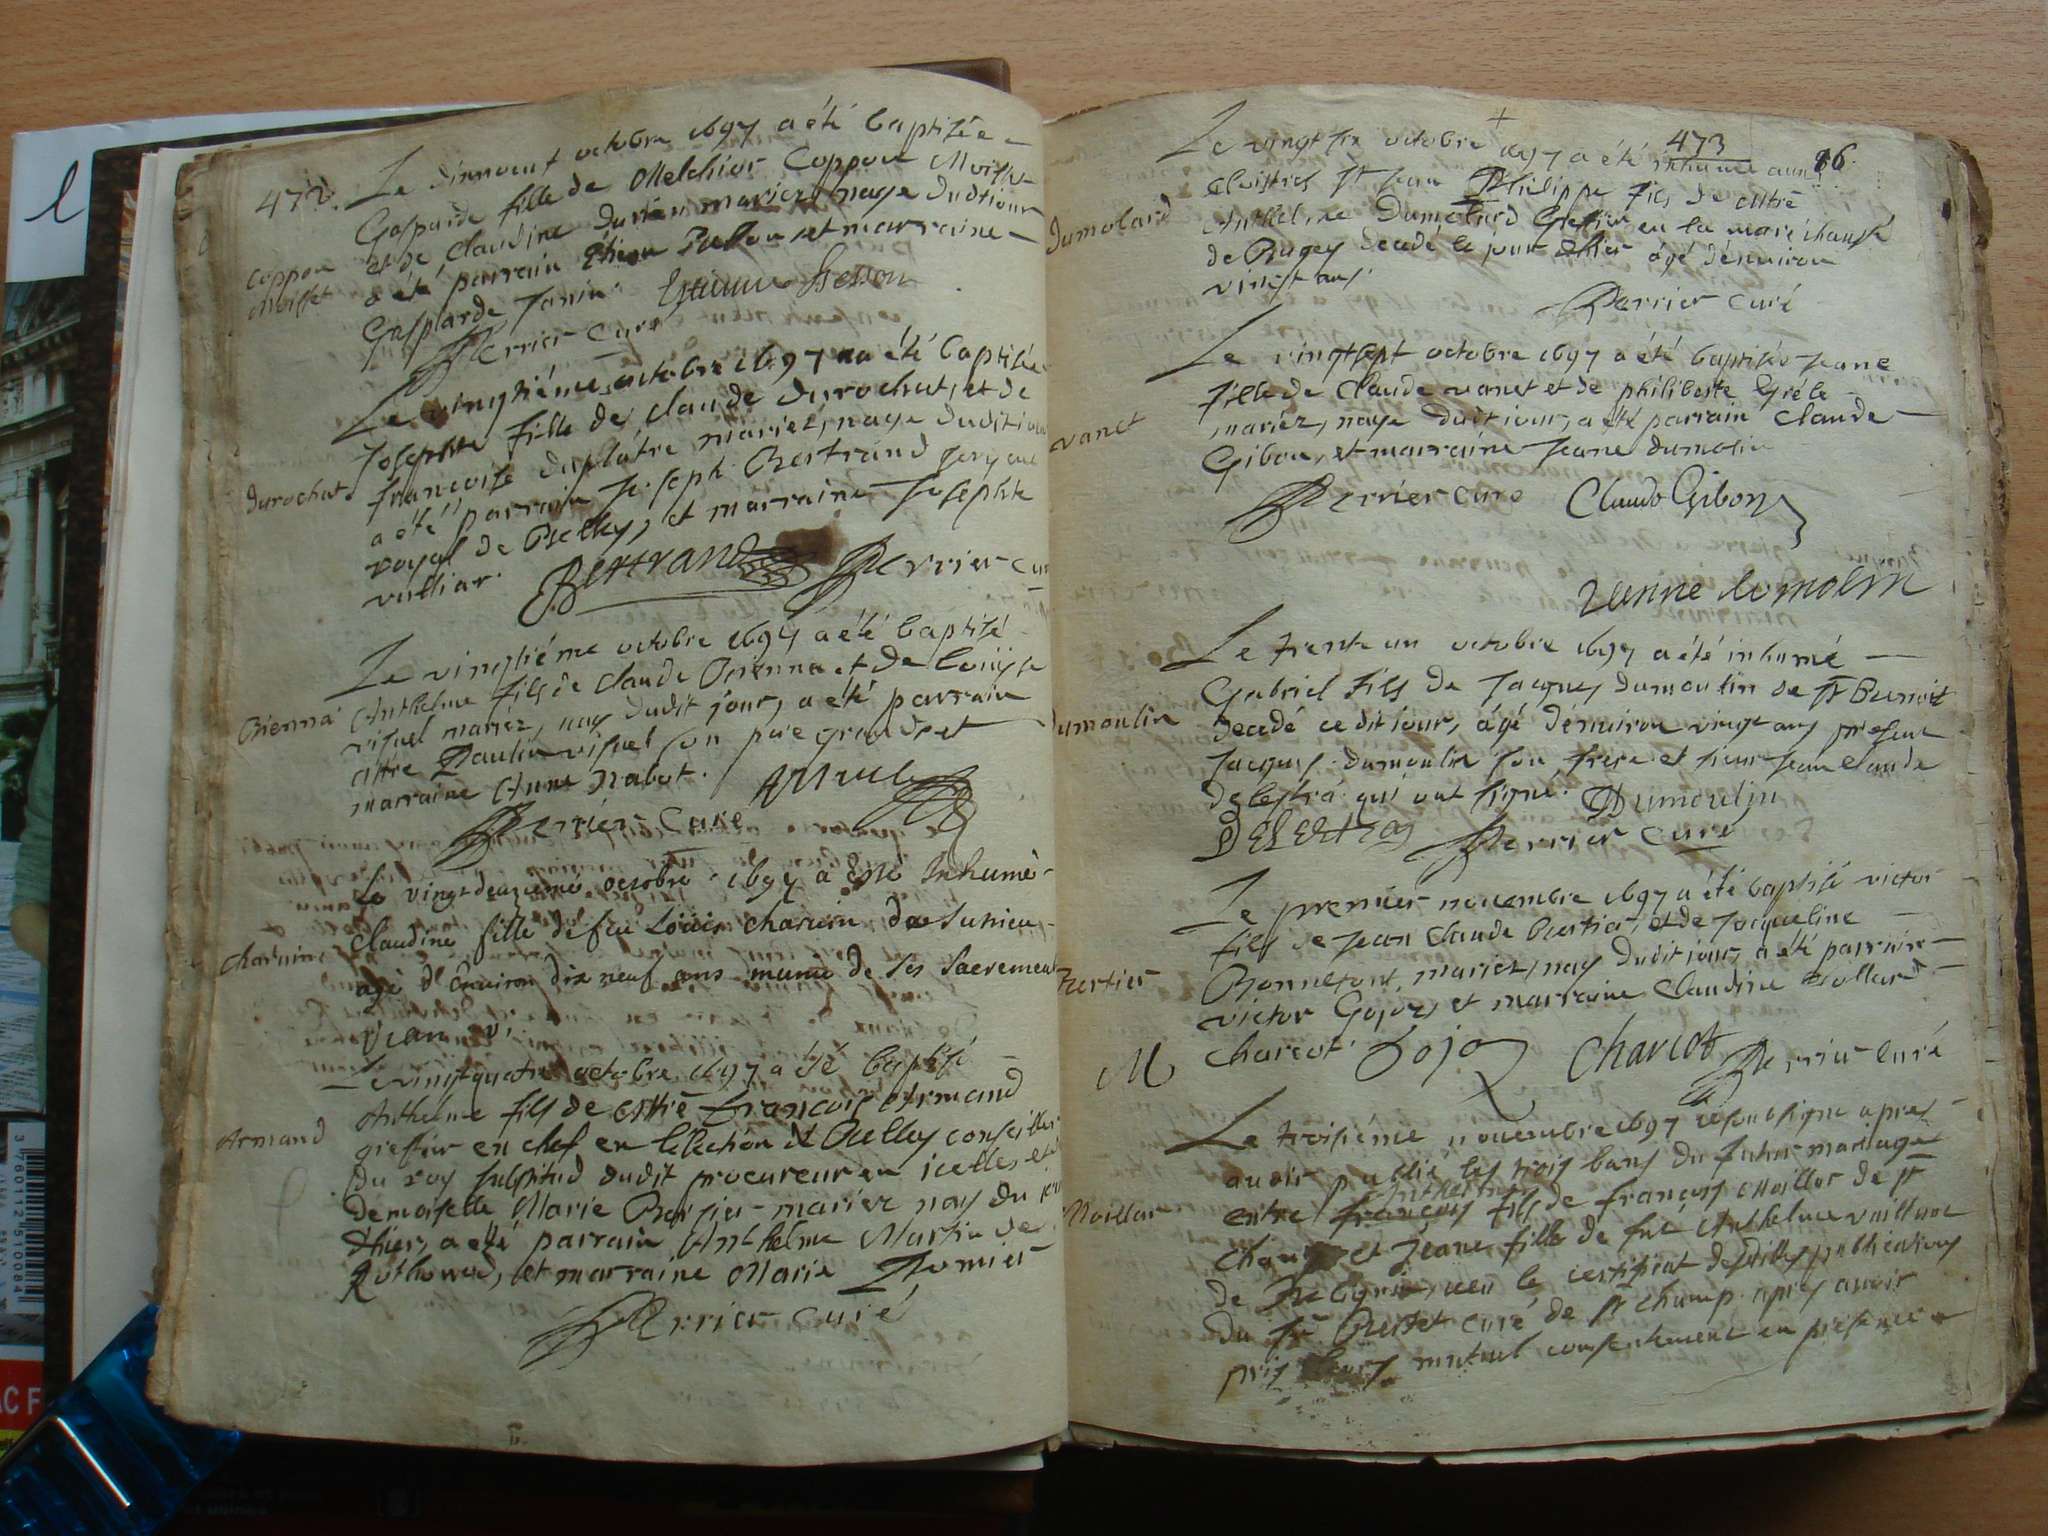 472.
Le dinnœuf octobre 1697 a été baptisée
Gasparde fille de Melchior Coppon Moisse
et de Claudine mariez naye dudt jour
a été parrain et marraine
Gasparde Janin
Perrier curé
Coppon
Le vingtiéme octobre 1697 a été baptisée
Josephte fille de claude Durochat, et de
francoise duplâtre mariez, naye dudit jour
a été parrain Joseph Bertrand
royal de Belley, et marraine Josephte
vulliar.
Durochat
Bertrand Perrier curé
Le vingtiéme octobre 1697 a été baptisé
Anthelme fils de claude Brienna et de Louyse
viguel mariez, nay dudit jour, a été parrain
Mtre Paulin viguel son pere grand et
marraine Anne Rabot.
Brienna
Perrier Curé
Le vingt deuzieme octobre 1697 a esté Inhumé
Claudine fille de feu Louis charuin de Sunieu
agé d'Environ dix neuf ans munie de ses sacrements
vicair
charuin
Le vingtquatre octobre 1697 a été baptisé
Anthelme fils de Mtre françois Armand
greffier en chef en l'election de Belley conseiller
du roy substitud dudit procureur en icelle, et de
Demoiselle Marie Rosier mariez nay du jour
d'hier, a été parrain Anthelme Martin de
Rothonod, et marraine Marie
Armand
Perrier curé
473
86.
Le vingt six octobre 1697 a été inhumé aux
cloistres St Jean Philippe fils de Mtre
Anthelme Dumolard Greffier en la marêchaussé
de Bugey decedé le jour d'hier âgé d'énuiron
vingt ans
Dumolard
Perrier curé
Le vingtsept octobre 1697 a été baptisée Jeane
fille de Claude vanet et de philiberte Gréle
mariéz, naye dudit jour, a été parrain Claude
Gibon, et marraine Jeane dumolin
vanet
Perrier curé Claude Gibon
Jenne dumolin
Le trente un octobre 1697 a été inhumé
Gabriel fils de Jacques dumoulin de St Benoit
decedé ce dit jour, âgé d'énuiron vingt ans present
Jacques dumoulin son frere et sieur Jean claude
delestra qui ont signé. Dumoulin
Delestra Perrier curé
Dumoulin
Le premier nouembre 1697 a été baptisé victor
fils de Jean Claude Burtier, et de Jacqueline
Bonnefont, mariez, nay dudit jour, a été parrain
victor Gojoz, et marraine Claudine
Charcot. Gojoz Charcot Perrier curé
Burtier
M
Le troisiéme nouembre 1697 je soussigné apres
auoir publié les trois bans du futur mariage
Anthelme
entre françois fils de françois Moillar de St
Champ et Jeane fille de fut Anthelme
de le certificat desdittes publications
du Sr curé de St champ apres auoir
pris leurs mutuel consentement en presence
Moillar